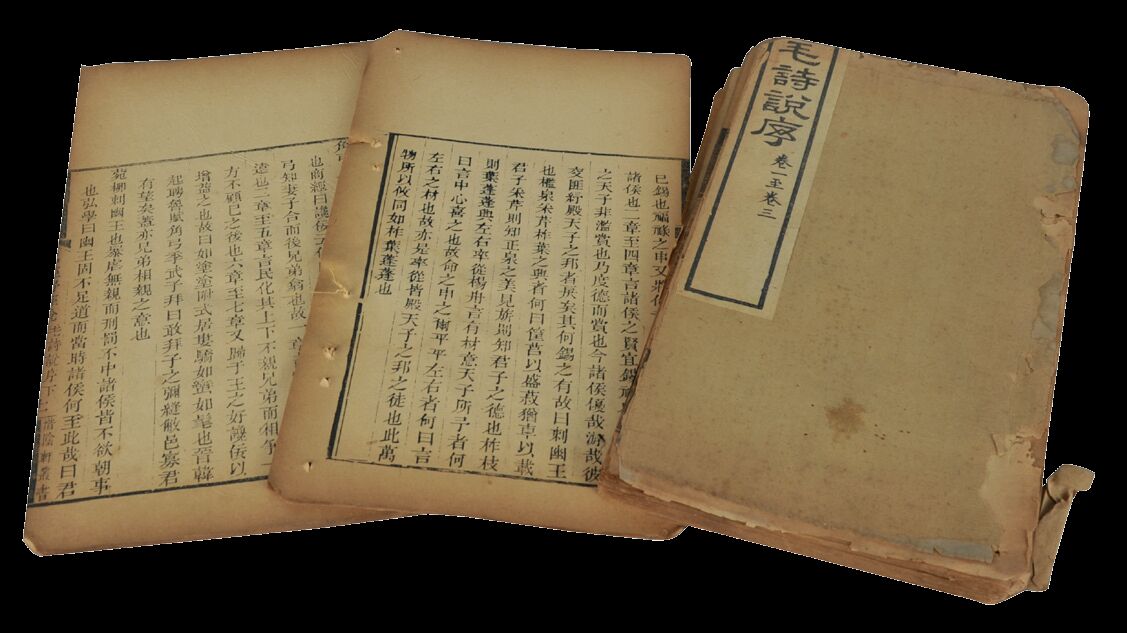 毛詩說序
卷一至卷三
巳錫也福祿之申又將
諸侯也二章至四章言諸侯之賢宜錫
之天子非濫賞也乃度德而賞也今諸侯優哉游哉彼
交匪紓殿天子之邦者戾矣其何錫之有故曰刺幽王
也檻泉采芹柞葉之興者何曰筐筥以盛菽猶車以載
君子采芹則知正泉之美見旂則知君子之德也柞枝
則葉蓬蓬興左右率從楊舟言有材意天子所予者何
曰言中心喜之也故命之申之爾平平左右者何曰言
左右之材也故亦是率從皆殿天子之邦之徒也此萬
物所以攸同如柞葉蓬蓬也
也商經曰讒佞
弓知妻子合而後兄弟翕也故一章
遠也二章至五章言民化其上下不親兄弟而相爭
方不顧巳之後也六章至七章又歸于王之好讒佞以
增益之也故曰如塗塗附式居婁驕如蠻如髦也晉韓
起聘魯賦角弓季武子拜曰敢拜子之彌縫敝邑寡君
有望矣蓋亦兄弟相親之意也
菀柳刺幽王也暴虐無親而刑罰不中諸侯皆不欲朝事
也弘學曰幽王固不足道而當時諸侯何至此哉曰君
惜陰軒叢書